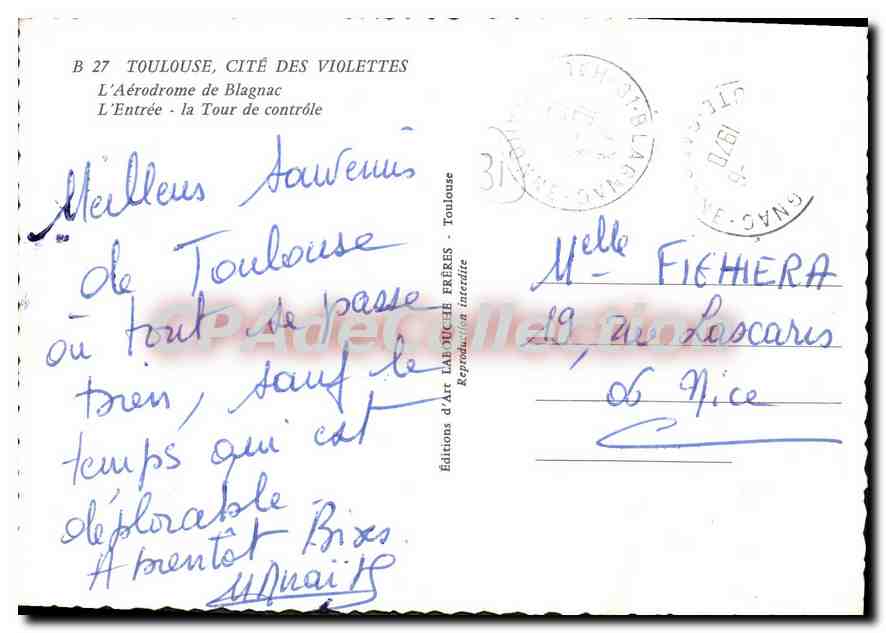 B 27 TOULOUSE, CITÉ DES VIOLETTES
L'Aérodrome de Blagnac
L'Entrée - la Tour de contrôle
Meilleurs souvenirs
de Toulouse
où tout se passe
bien, sauf le
temps qui est
déplorable.
A bientôt Bises.
Éditions d'Art LABOUCHE FRÈRES - Toulouse
Reproduction interdite
31
31-BLAGNAC
1970
GNAC
Melle FIEHIERA
29, rue Lascaris
06 Nice
CPAdeCollection